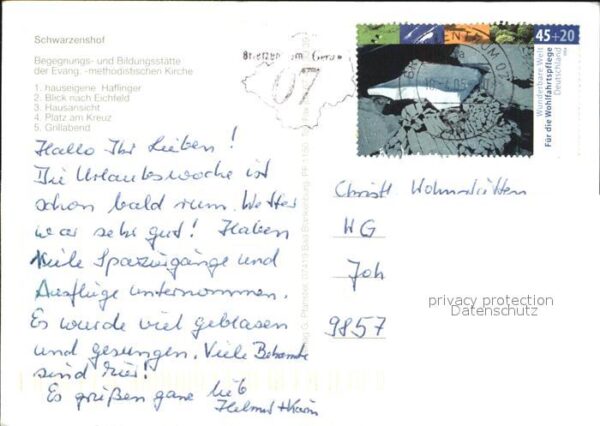 Schwarzenshof
Begegnungs- und Bildungsstätte
der Evang. -methodistischen Kirche
1. hauseigene Haflinger
2. Blick nach Eichfeld
3. Hausansicht
4. Platz am Kreuz
5. Grillabend
Hallo Ihr Lieben!
Die Urlaubswoche ist
schon bald rum. Wetter
war sehr gut! Haben
viele Spaziergänge und
Ausflüge unternommen.
Es wurde viel geblasen
und gesungen. Viele Bekannte
sind hier!
Es grüßen ganz lieb
Helmut + Karin
07
45+20
Wunderbare Welt
Für die Wohlfahrtspflege
Deutschland
Christl. Wohnstätten
WG
Joh
9857
privacy protection
Datenschutz
07419 Bad Blankenburg